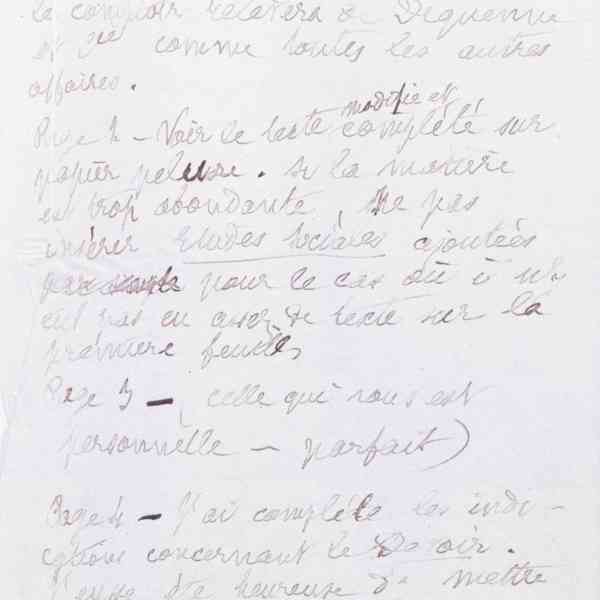 le comptoir relatera de Dequenne
et Cie comme toutes les autres
affaires.
modifié et
Page 2 - Voir le texte complété sur
papier pelure. Si la matière
est trop abondante, ne pas
insérer Etudes sociales ajoutées
pour le cas où il n'y
eut pas eu assez de texte sur la
première feuille,
Page 3 - celle qui nous est
personnelle - parfait)
Page 4 - J'ai complété les indi-
cations concernant le Devoir.
J'eusse été heureuse de mettre